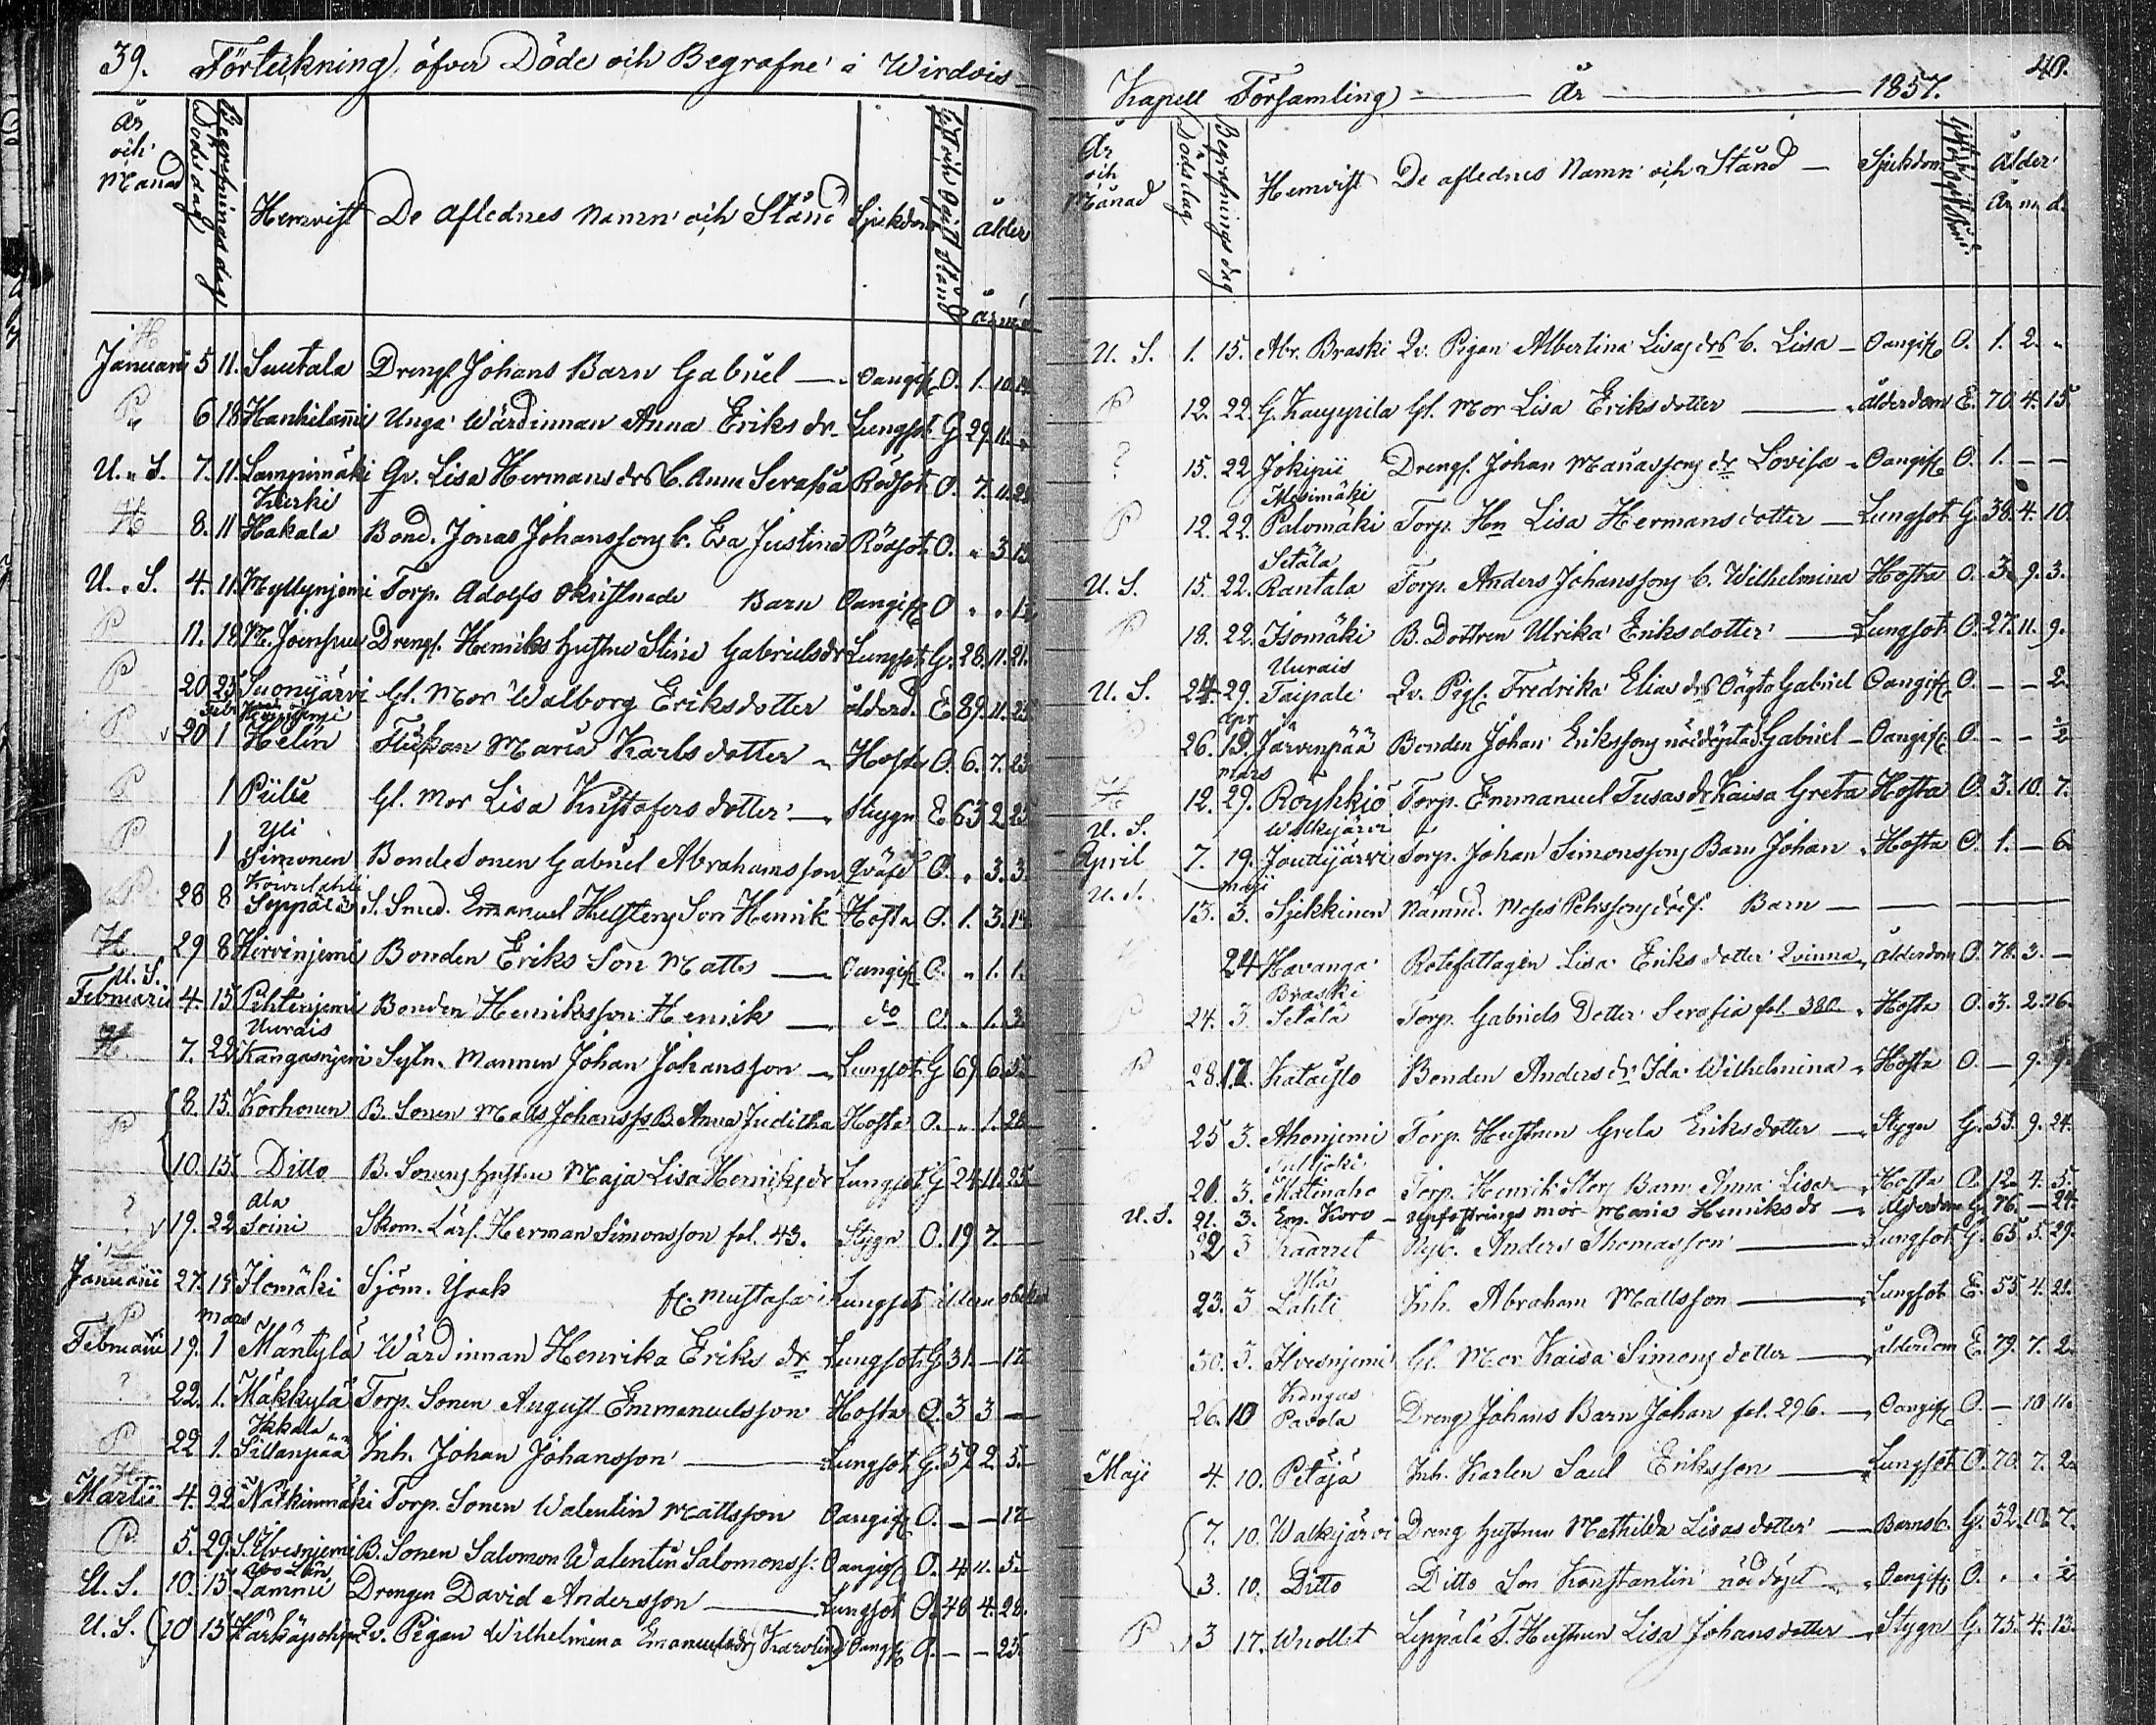 39. Förteckning öfver Döde och Begrafne i Wirdois
År och Månad Dödsdag Begrafningsdag Hemvist De aflednes Namn och Stånd Sjukdom Ålder
År m d
Januarii 5 11. Suutala Drengs. Johans Barn Gabriel — Oangif. O. 1. 10. 14
P 6 18 Hankilanni Unga Wärdinnan Anna Eriks dr Lungsot G 29 11 „
U. S. 7. 11. Lampimäki Qv. Lisa Hermans drs b. Anna Serafia Rödsot O. 7. 11.
Kurki
H 8. 11 Hakala Bond. Jonas Johanssons b. Eva Justina Rödsot O. „ 3 13
U. S. 4. 11. Myllynjemi Torp. Adolfs okristnade Barn Oangif O „ „
P 11. 18 M. Joensuu Drengs. Henriks hustru Stina Gabrielsdr Lungsot G. 28. 11. 21.
P 20 25 Suonijärvi Gl. Mor Walborg Eriksdotter ålderd. E 89. 11. 25
Febr
P 20 1 Helin Flickan Maria Karlsdotter „ Hosta O. 6. 7. 23
P 1 Piilu Gl. Mor Lisa Kristofersdotter — Stygn E 63 2 25
Yli
P 1 Simonen Bondesonen Gabriel Abrahamsson Qväfd O. „ 3. 3.
P 28 8 Seppälä S. Smed. Emanuel Helstens Son Henrik Hosta O. 1. 3. 14
H. 29 8 Hirvinjemi Bonden Eriks Son Matts — Oangif O. „ 1. 1.
U. S.
Februarii 4. 15 Pihterinjemi Bonden Henriksson Henrik — do O. „ 1. 3.
Uurais
H. 7. 22 Kangasnjemi Sytn. Mannen Johan Johansson — Lungsot G 69 6.
8. 15. Korhonen B. Sonen Matts Johanss. B. Anna Juditha Hosta O. „ 1. 28
P
10. 15. Ditto B. Sonens hustru Maja Lisa Henriks dr Lungsot G 24 11. 25
Ala
? 19. 22 Soini Skom. Lärl. Herman Simonsson fol. 43. Stygn O. 19 7. —
Januarii 27. 15 Ilomäki Sjöm. Isak fr. Mustasari Lungsot
P mars
Februarii 19. 1 Mäntylä Wärdinnan Henrika Eriks dr Lungsot G 31. — 12
? 22. 1. Mäkkylä Torp. Sonen August Emmanuelsson Hosta O. 3 3 —
Hakala
P 22 1. Sillanpää Inh. Johan Johansson — Lungsot G. 52 2 5.
H
Martii 4. 22 Nätkinmäki Torp. Sonen Walentin Mattsson Oangif O. — — 12
P 5. 29. S. Ilvesnjemi B. Sonen Salomon Walentin Salomonss: Oangif O. 4 11. 5
U. S. 10. 15 Lamnii Drengen David Andersson — Lungsot O. 40 4. 28.
U. S. 10 15 Härkäpohja Qv. Pigan Wilhelmina Emanuelsdrs Karolina Oangif O. — — 25
Kapell Församling — År — 1857. 40.
År och Månad Dödsdag Begrafningsdag Hemvist De aflednes Namn och Stånd — Sjukdom Ålder
År m d.
U. S. 1. 15. Abr. Braski Qv. Pigan Albertina Lisas drs b. Lisa — Oangif O. 1. 2. „
P 12. 22. G. Kauppila Gl. Mor Lisa Eriksdotter — Ålderdom E. 70. 4. 15
? 15. 22 Jokipii Drengs. Johan Manassons dr Lovisa „ Oangif O. 1. — —
Mesimäki
P 12. 22. Palomäki Torp. Hn Lisa Hermansdotter — Lungsot G. 38. 4. 10.
Setälä
U. S. 15. 22. Rantala Torp. Anders Johanssons b. Wilhelmina Hosta O. 3. 9. 3.
P 18. 22. Isomäki B. Dottren Ulrika Eriksdotter — Lungsot O. 27. 11. 9.
Uurais
U. S. 24. 29. Taipale Qv. Pigs. Fredrika Elias drs Oägta Gabriel Oangif O. — — 2.
Apr
26. 19. Järvenpää Bonden Johan Erikssons nöddöpta Gabriel — Oangif O. — — ½
mars
H 12. 29. Röyhkiö Torp. Emmanuel Tusas dr Kaisa Greta Hosta O. 3. 10. 7.
U. S. Walkjärvi
April 7. 19. Jouttijärvi Torp. Johan Simonssons Barn Johan „ Hosta O. 1. — 6
U. S. Maji
13. 3. Sjekkinen Nämnd. Moses Pehrssons dödf. Barn —
24 Havanga Rotefattagen Lisa Eriksdotter Qvinna „ Ålderdom O. 78. 3. —
Braski
P 24. 3. Setälä Torp. Gabriels Dotter Serafia fol. 380 „ Hosta O. 3. 2. 26
P 28. 12. Kataisto Bonden Anders dr Ida Wilhelmina „ Hosta O. — 9. 9
25 3. Ahonjemi Torp. Hustrun Greta Eriksdotter — Stygn G. 53. 9. 24.
20. 3. Matinaho Torp. Henrik Stors Barn Anna Lisa „ Hosta O. 12. 4. 5.
U. S. 21. 3. Erp. Koro — Upfostrings mor Maria Henriks dr — Ålderdom G 76. — 24.
22 3 Kaarret Anders Thomasson — Lungsot G. 65. 5. 29.
23. 3 Lahti Inh. Abraham Mattsson — Lungsot E. 55 4. 21.
30. 3. Ilvesnjemi Gl. Mor Kaisa Simonsdotter — Ålderdom E. 79. 7. 2.
Kangas
26. 10 Pavola Drengs Johans Barn Johan fol. 296. — Oangif O. — 10 11.
Maji 4. 10. Petäjä Inh. Karlen Saul Eriksson — Lungsot O. 70. 7. 2.
7. 10. Walkjärvi Dreng Hustrun Mathilda Lisas dotter — Barnsb. G. 32. 10. 7.
3. 10. Ditto Ditto Son Konstantin nöddöpt „ Oangif O. „ „ ½
P 3 17. Wuollet Leppälä T. Hustrun Lisa Johansdotter — Stygn G. 75. 4. 13.